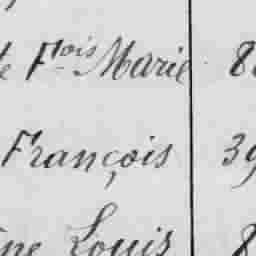 Fois Marie 8
François 39
Louis 8